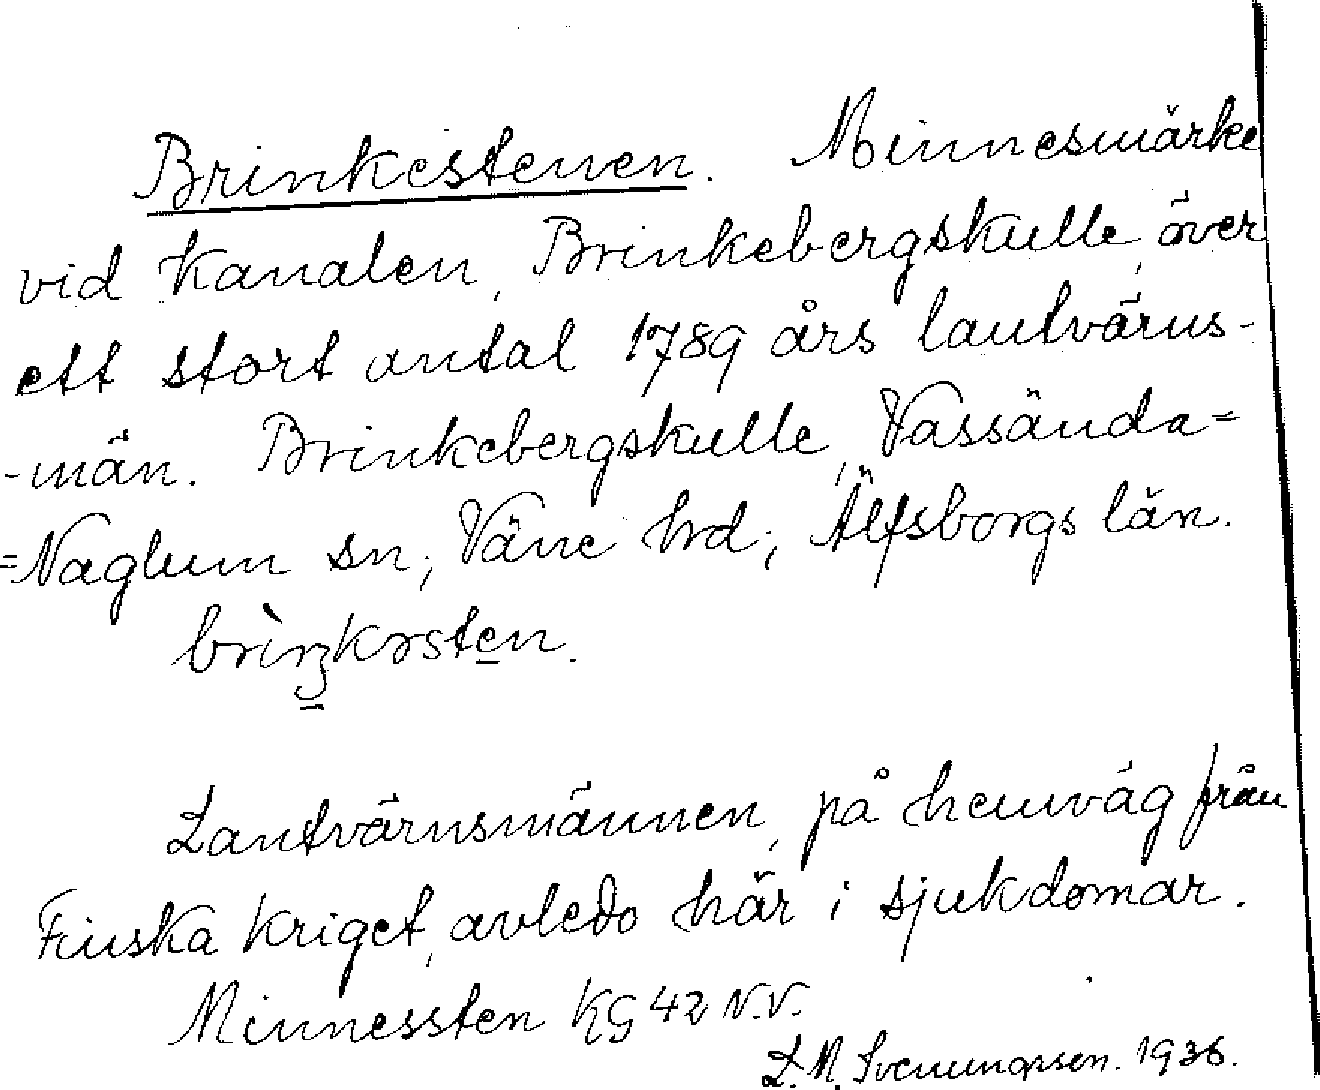 Brinkestenen. Minnesmärke
vid Kanalen, Brinkebergskulle, över
ett stort antal 1789 års lantvärns-
-män. Brinkebergskulle, Vassända=
=Naglum sn; Väne hrd; Älfsborgs län.
brìŋkəsten.
Lantvärnsmännen, på hemväg från
Finska Kriget, avledo här i sjukdomar.
Minnessten KG 42 N.V.
L. M. Svenungsson. 1936.